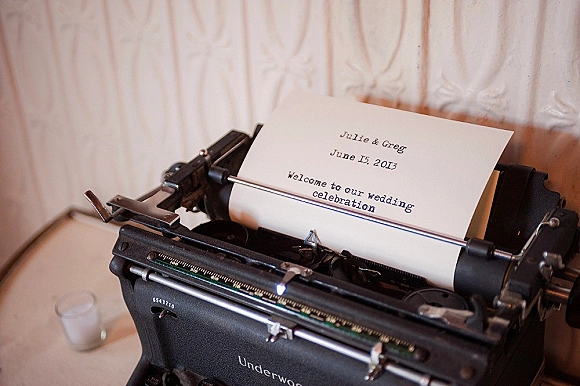 Julie & Greg
June 15, 2013
Welcome to our wedding
celebration
Underwoo